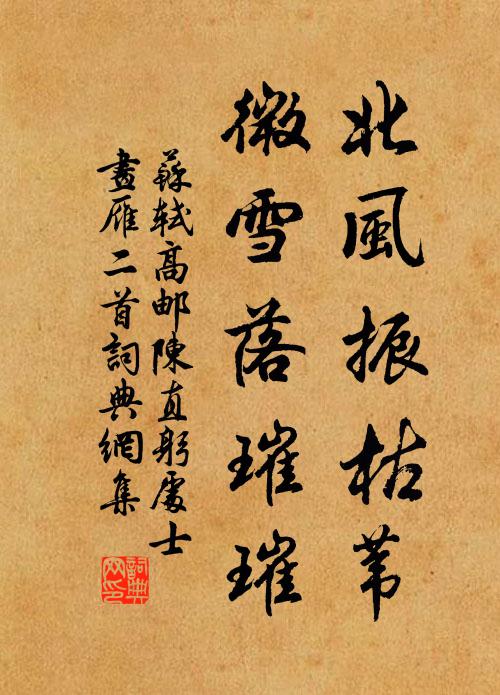 北風振枯苇
微雪落璀璀
蘇軾高邮陳直躬處士
畫雁二首詞典網集
詞典
网印